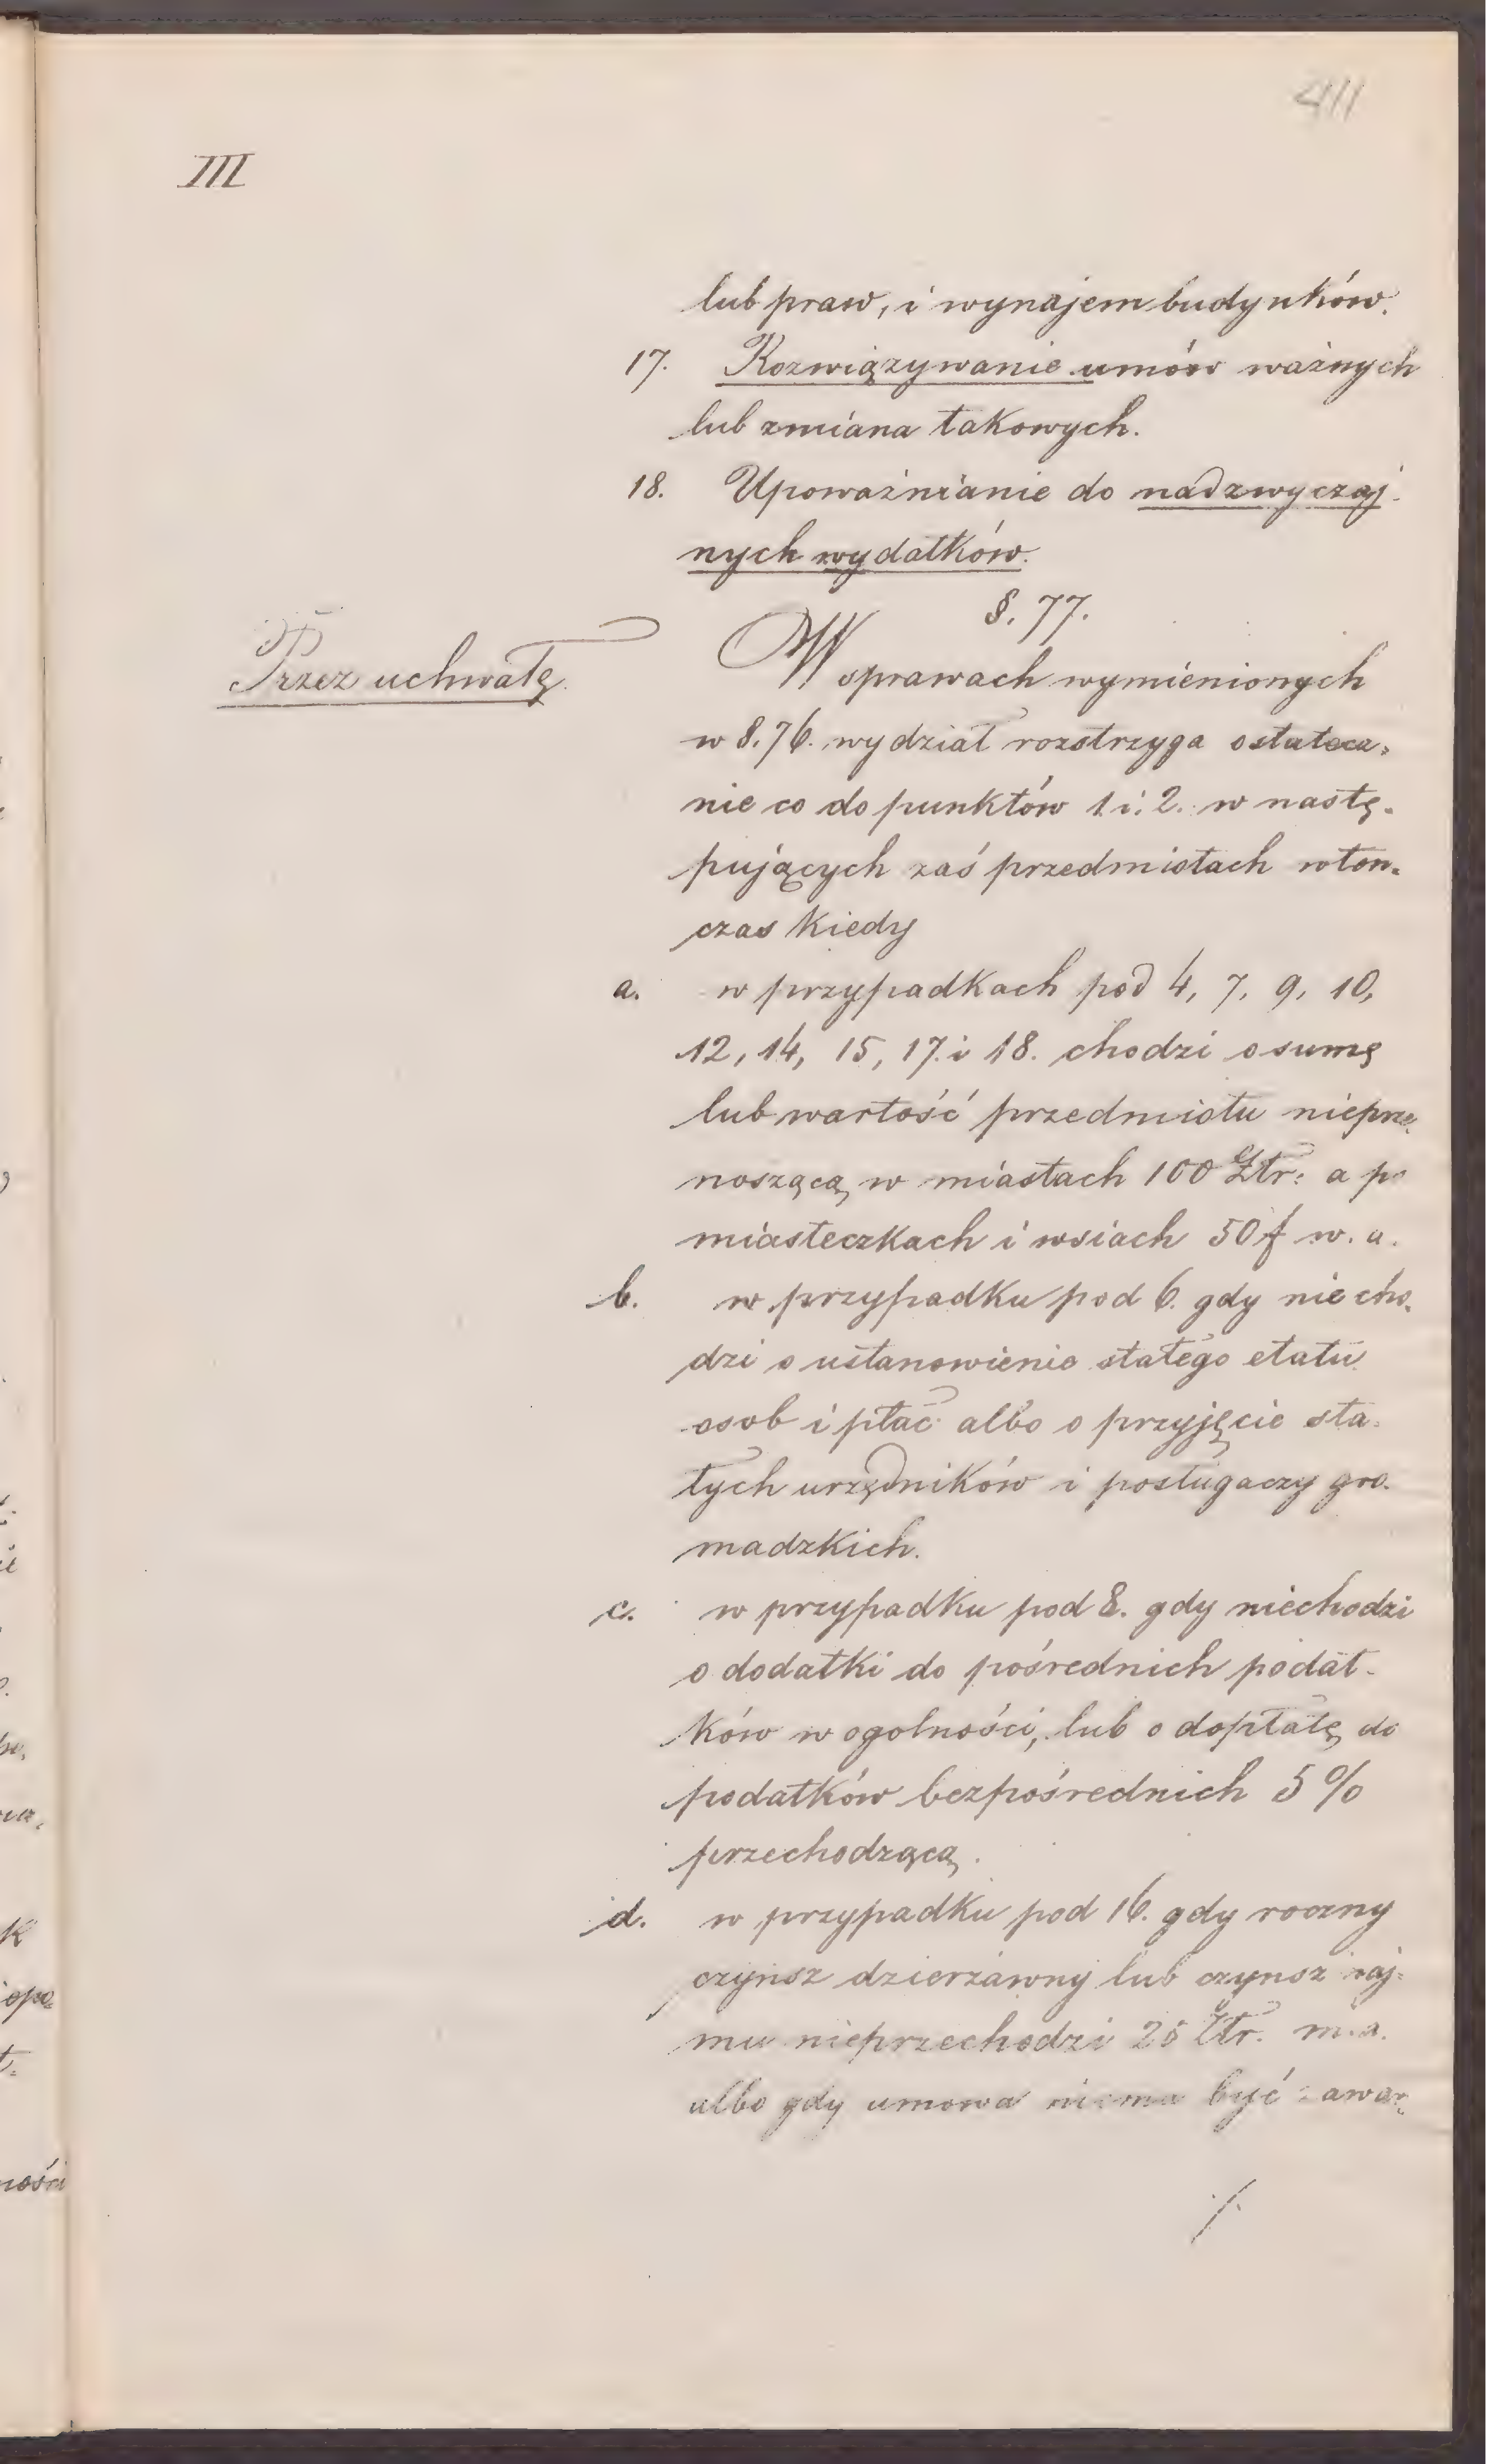 411
III
lub praw, i wynajem budynków.
17. Rozwiązywanie umów ważnych
lub zmiana takowych.
18. Upoważnianie do nadzwyczaj-
nych wydatków.
§. 77.
Przez uchwałę.
W sprawach wymienionych
w §. 76. wydział rozstrzyga ostatecz-
nie co do punktów 1. i. 2. w nastę-
pujących zaś przedmiotach wten-
czas kiedy
a. w przypadkach pod 4, 7, 9, 10,
12, 14, 15, 17. i 18. chodzi o sumę
lub wartość przedmiotu nieprze-
noszącą w miastach 100 Złr: a po
miasteczkach i wsiach 50 f w. a.
b. w przypadku pod 6. gdy nie cho-
dzi o ustanowienie stałego etatu
osob i płac albo o przyjęcie sta-
łych urzędników i posługaczy gro-
madzkich.
c. w przypadku pod 8. gdy niechodzi
o dodatki do pośrednich podat-
ków w ogolności, lub o dopłatę do
podatków bezpośrednich 5%
przechodzącą.
d. w przypadku pod 16. gdy roczny
czynsz dzierżawny lub czynsz naj-
mu nieprzechodzi 25 Złr.
albo gdy umowa niema być zawar-
/.